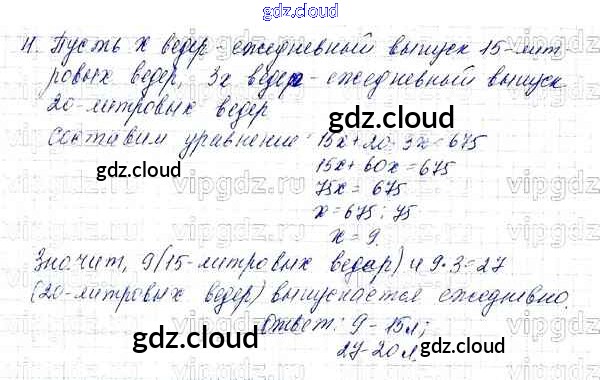 gdz.cloud
4. Пусть х ведер - ежедневный выпуск 15-лит-
ровых ведер, 3х ведер - ежедневный выпуск
20-литровых ведер
gdz.cloud
Составим уравнение: 15х+20·3х=675
gdz.cloud
15х+60х=675
75х=675
х=675:75
х=9.
Значит, 9(15-литровых ведер) и 9·3=27
(20-литровых ведер) выпускается ежедневно.
Ответ: 9-15л;
gdz.cloud
27-20л.
gdz.cloud